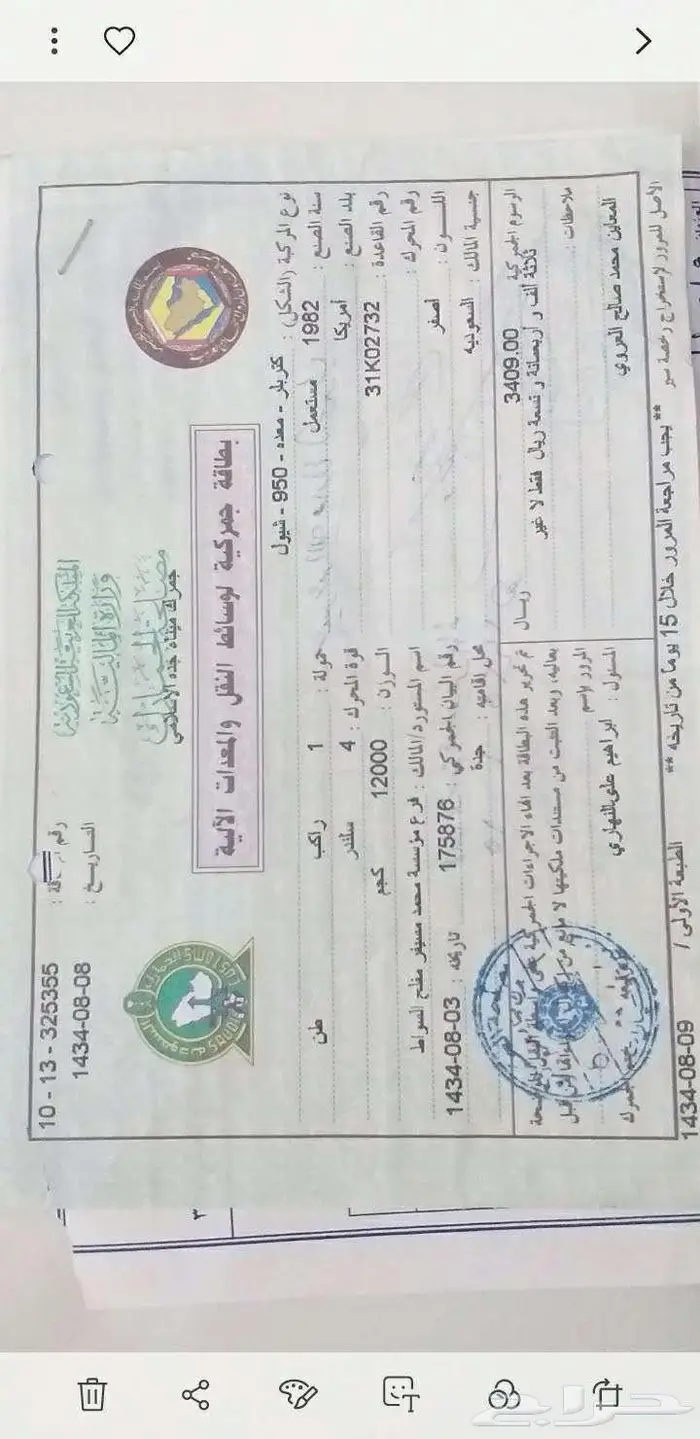 المملكة العربية السعودية
وزارة المالية
مصلحة الجمارك
جمرك ميناء جدة الاسلامي
10 - 13 - 325355
التاريخ : 1434-08-08
بطاقة جمركية لوسائط النقل والمعدات الآلية
نوع المركبة (الشكل) : كتربلر - معده - 950 - شيول
سنة الصنع : 1982 مستعمل حمولة : 1 راكب طن
بلد الصنع : أمريكا قوة المحرك : 4 سلندر
رقم القاعدة : 31K02732 الوزن : 12000 كجم
رقم المحرك : اسم المستورد/المالك : فرع مؤسسة محمد مسيفر مفلح السواط
اللون : اصفر رقم البيان الجمركي : 175876 تاريخه : 1434-08-03
جنسية المالك : السعوديه محل اقامته : جدة
الرسوم الجمركية 3409.00 ريال
ثلاثة ألف و أربعمائة و تسعة ريال فقط لا غير
ملاحظات :
المعاين محمد صالح العروي
تم تحرير هذه البطاقة بعد انهاء الاجراءات الجمركية على
بعاليه، وبعد التثبت من مستندات ملكيتها لا مانع من
المرور بإسم
المسئول : ابراهيم على النهاري
الأصل للمرور لإستخراج رخصة سير ** يجب مراجعة المرور خلال 15 يوما من تاريخه ** الطبعة الأولى / 1434-08-09
حراج